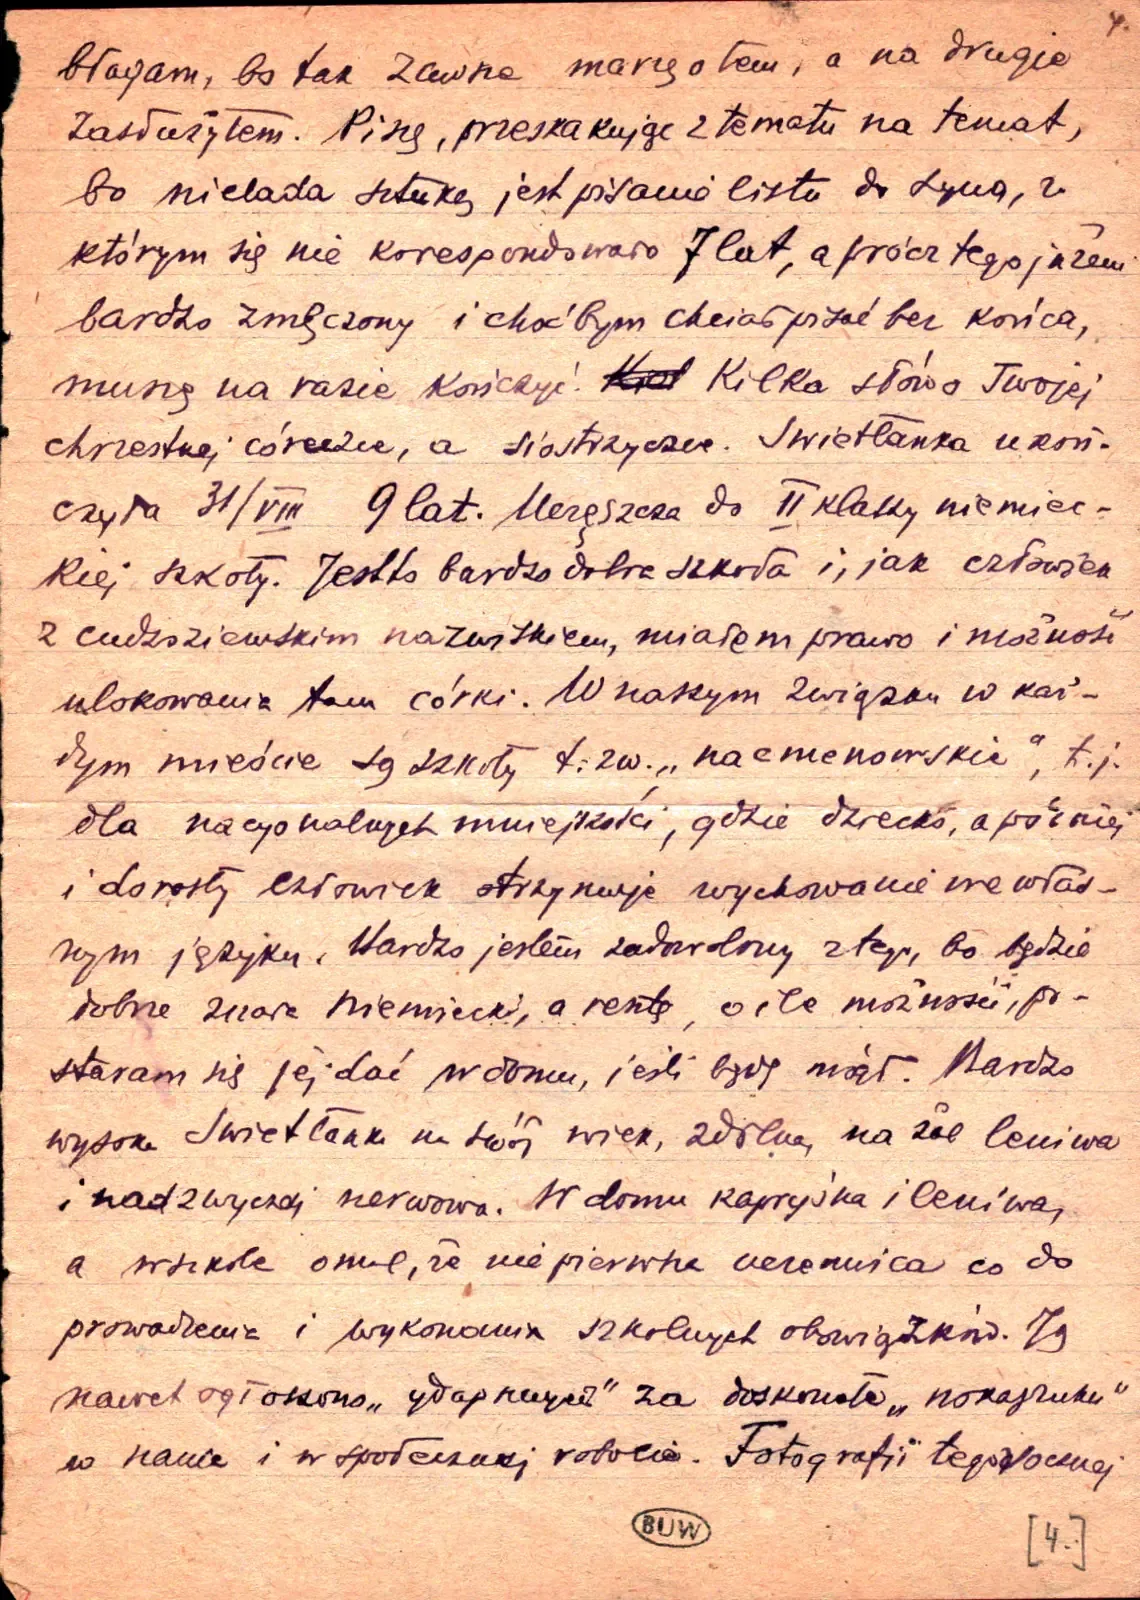 4.
błagam, bo tak zawsze marzę o tem, a na drugie
zasłużyłem. Piszę, przeskakując z tematu na temat,
bo nielada sztuką jest pisanie listu do syna, z
którym się nie korespondowało 7 lat, a prócz tego jużem
bardzo zmęczony i choćbym chciał pisać bez końca,
muszę na razie kończyć. Kilka słów o Twojej
chrzestnej córeczce, a siostrzyczce. Swietłanka ukoń-
czyła 31/VIII 9 lat. Uczęszcza do II klasy niemiec-
kiej szkoły. Jest to bardzo dobra szkoła i, jak człowiek
z cudzoziemskim nazwiskiem, miałem prawo i możność
ulokowania tam córki. W naszym związku w każ-
dym mieście są szkoły t. zw. „nacmenowskie", t.j.
dla nacyonalnych mniejszości, gdzie dziecko, a później
i dorosły człowiek otrzymuje wychowanie we włas-
nym języku. Bardzo jestem zadowolony z tego, bo będzie
dobrze znała niemiecki, a resztę, o ile możności, po-
staram się jej dać w domu, jeśli będę mógł. Bardzo
wysoka Swietłanka na swój wiek, zdolna, na żal leniwa
i nadzwyczaj nerwowa. W domu kapryśna i leniwa,
a w szkole omal, że nie pierwsza uczennica co do
prowadzenia i wykonania szkolnych obowiązków. Ją
nawet ogłoszono „ за doskonałe „
w nauce i w społecznej robocie. Fotografji tegorocznej
BUW
[4.]